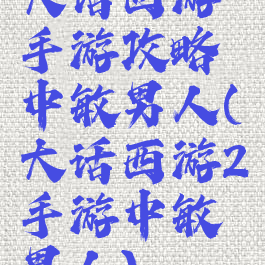 大话西游
手游攻略
中敏男人(
大话西游2
手游中敏
男人)